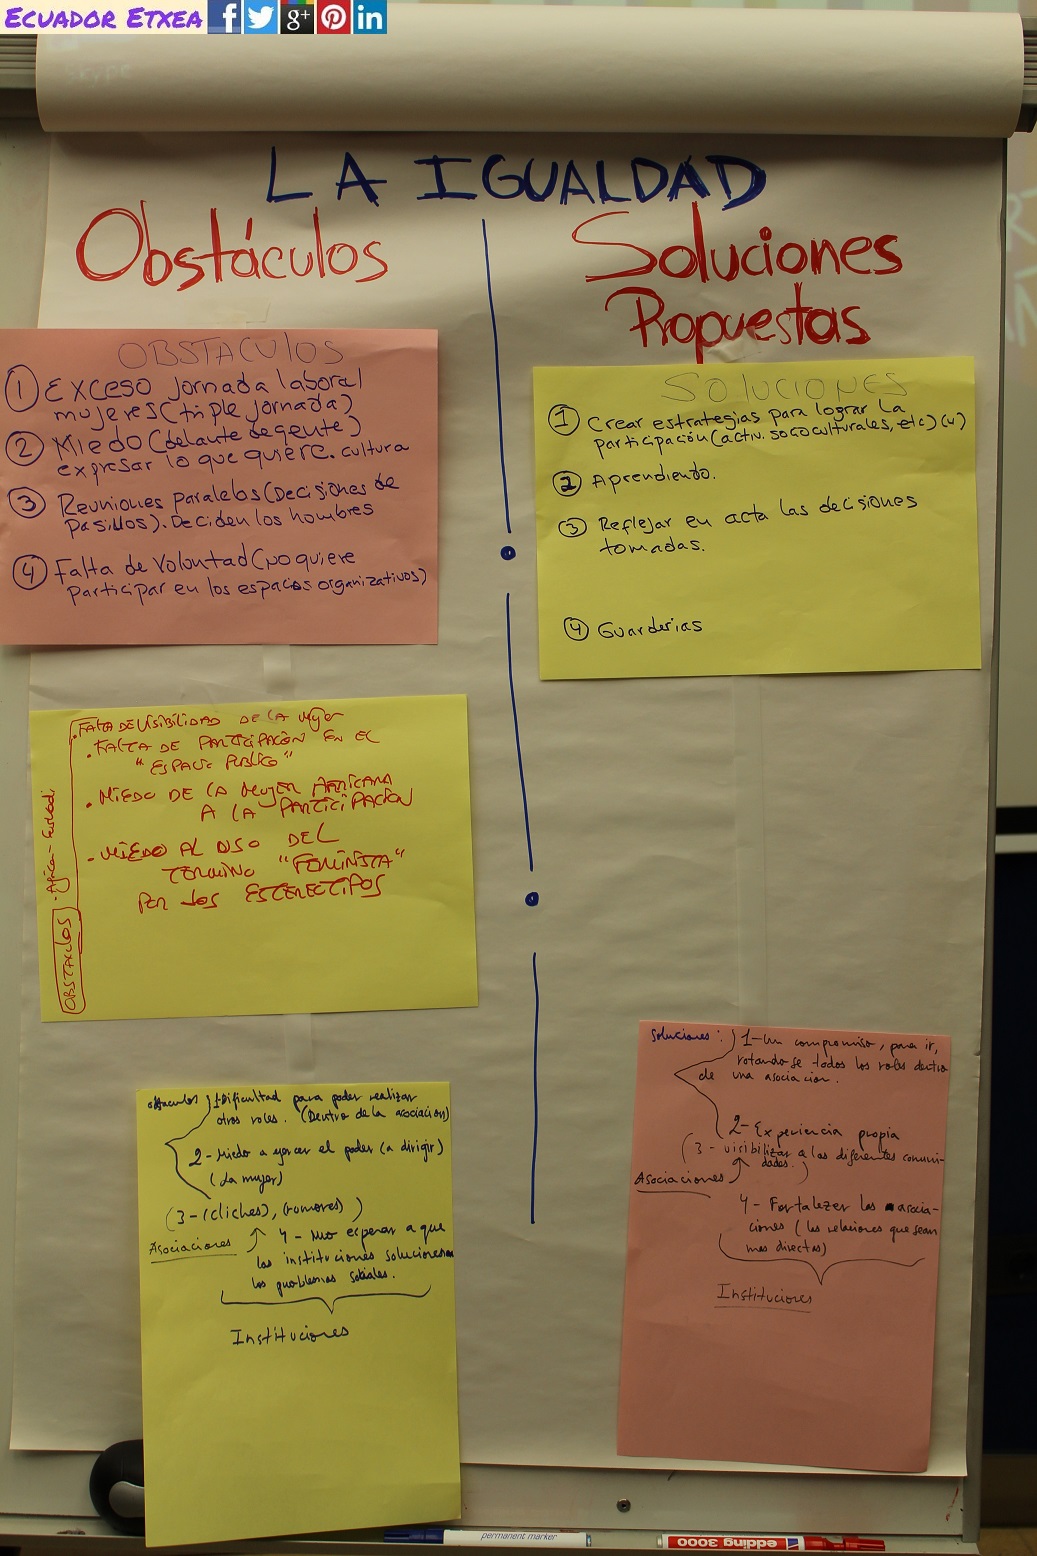 ECUADOR ETXEA
Skype
LA IGUALDAD
Obstáculos
OBSTACULOS
① Exceso jornada laboral
mujeres (triple jornada)
② Miedo (delante de gente)
expresar lo que quiere. cultura
③ Reuniones paralelas (Decisiones de
pasillos). Deciden los hombres
④ Falta de voluntad (no quiere
participar en los espacios organizativos)
OBSTACULOS
- Africa - Euskadi
. FALTA DE VISIBILIDAD DE LA Mujer
. FALTA DE PARTICIPACIÓN EN EL
"ESPACIO PÚBLICO"
. MIEDO DE LA MUJER AFRICANA
A LA PARTICIPACIÓN
. MIEDO AL USO DEL
TERMINO "FEMINISTA"
POR LOS ESTEREOTIPOS
obstaculos 1-Dificultad para poder realizar
otros roles. (Dentro de la asociación)
2- Miedo a ejercer el poder (a dirigir)
(La mujer)
(3-(cliches), (rumores))
Asociaciones
4- No esperar a que
las instituciones solucionen
los problemas sociales.
Instituciones
Soluciones
Propuestas
SOLUCIONES
① Crear estrategias para lograr la
participación (activ. sococulturales, etc)
② Aprendiento.
③ Reflejar en acta las decisiones
tomadas.
④ Guarderias
Soluciones: 1-Un compromiso, para ir,
rotando-se todos los roles dentro
de una asociacion.
2- Experiencia propia
(3- visibilizar a las diferentes comuni-
dades.)
Asociaciones
4- Fortalezer las asocia-
ciones (las relaciones que sean
mas directas)
Instituciones
permanent marker
edding 3000